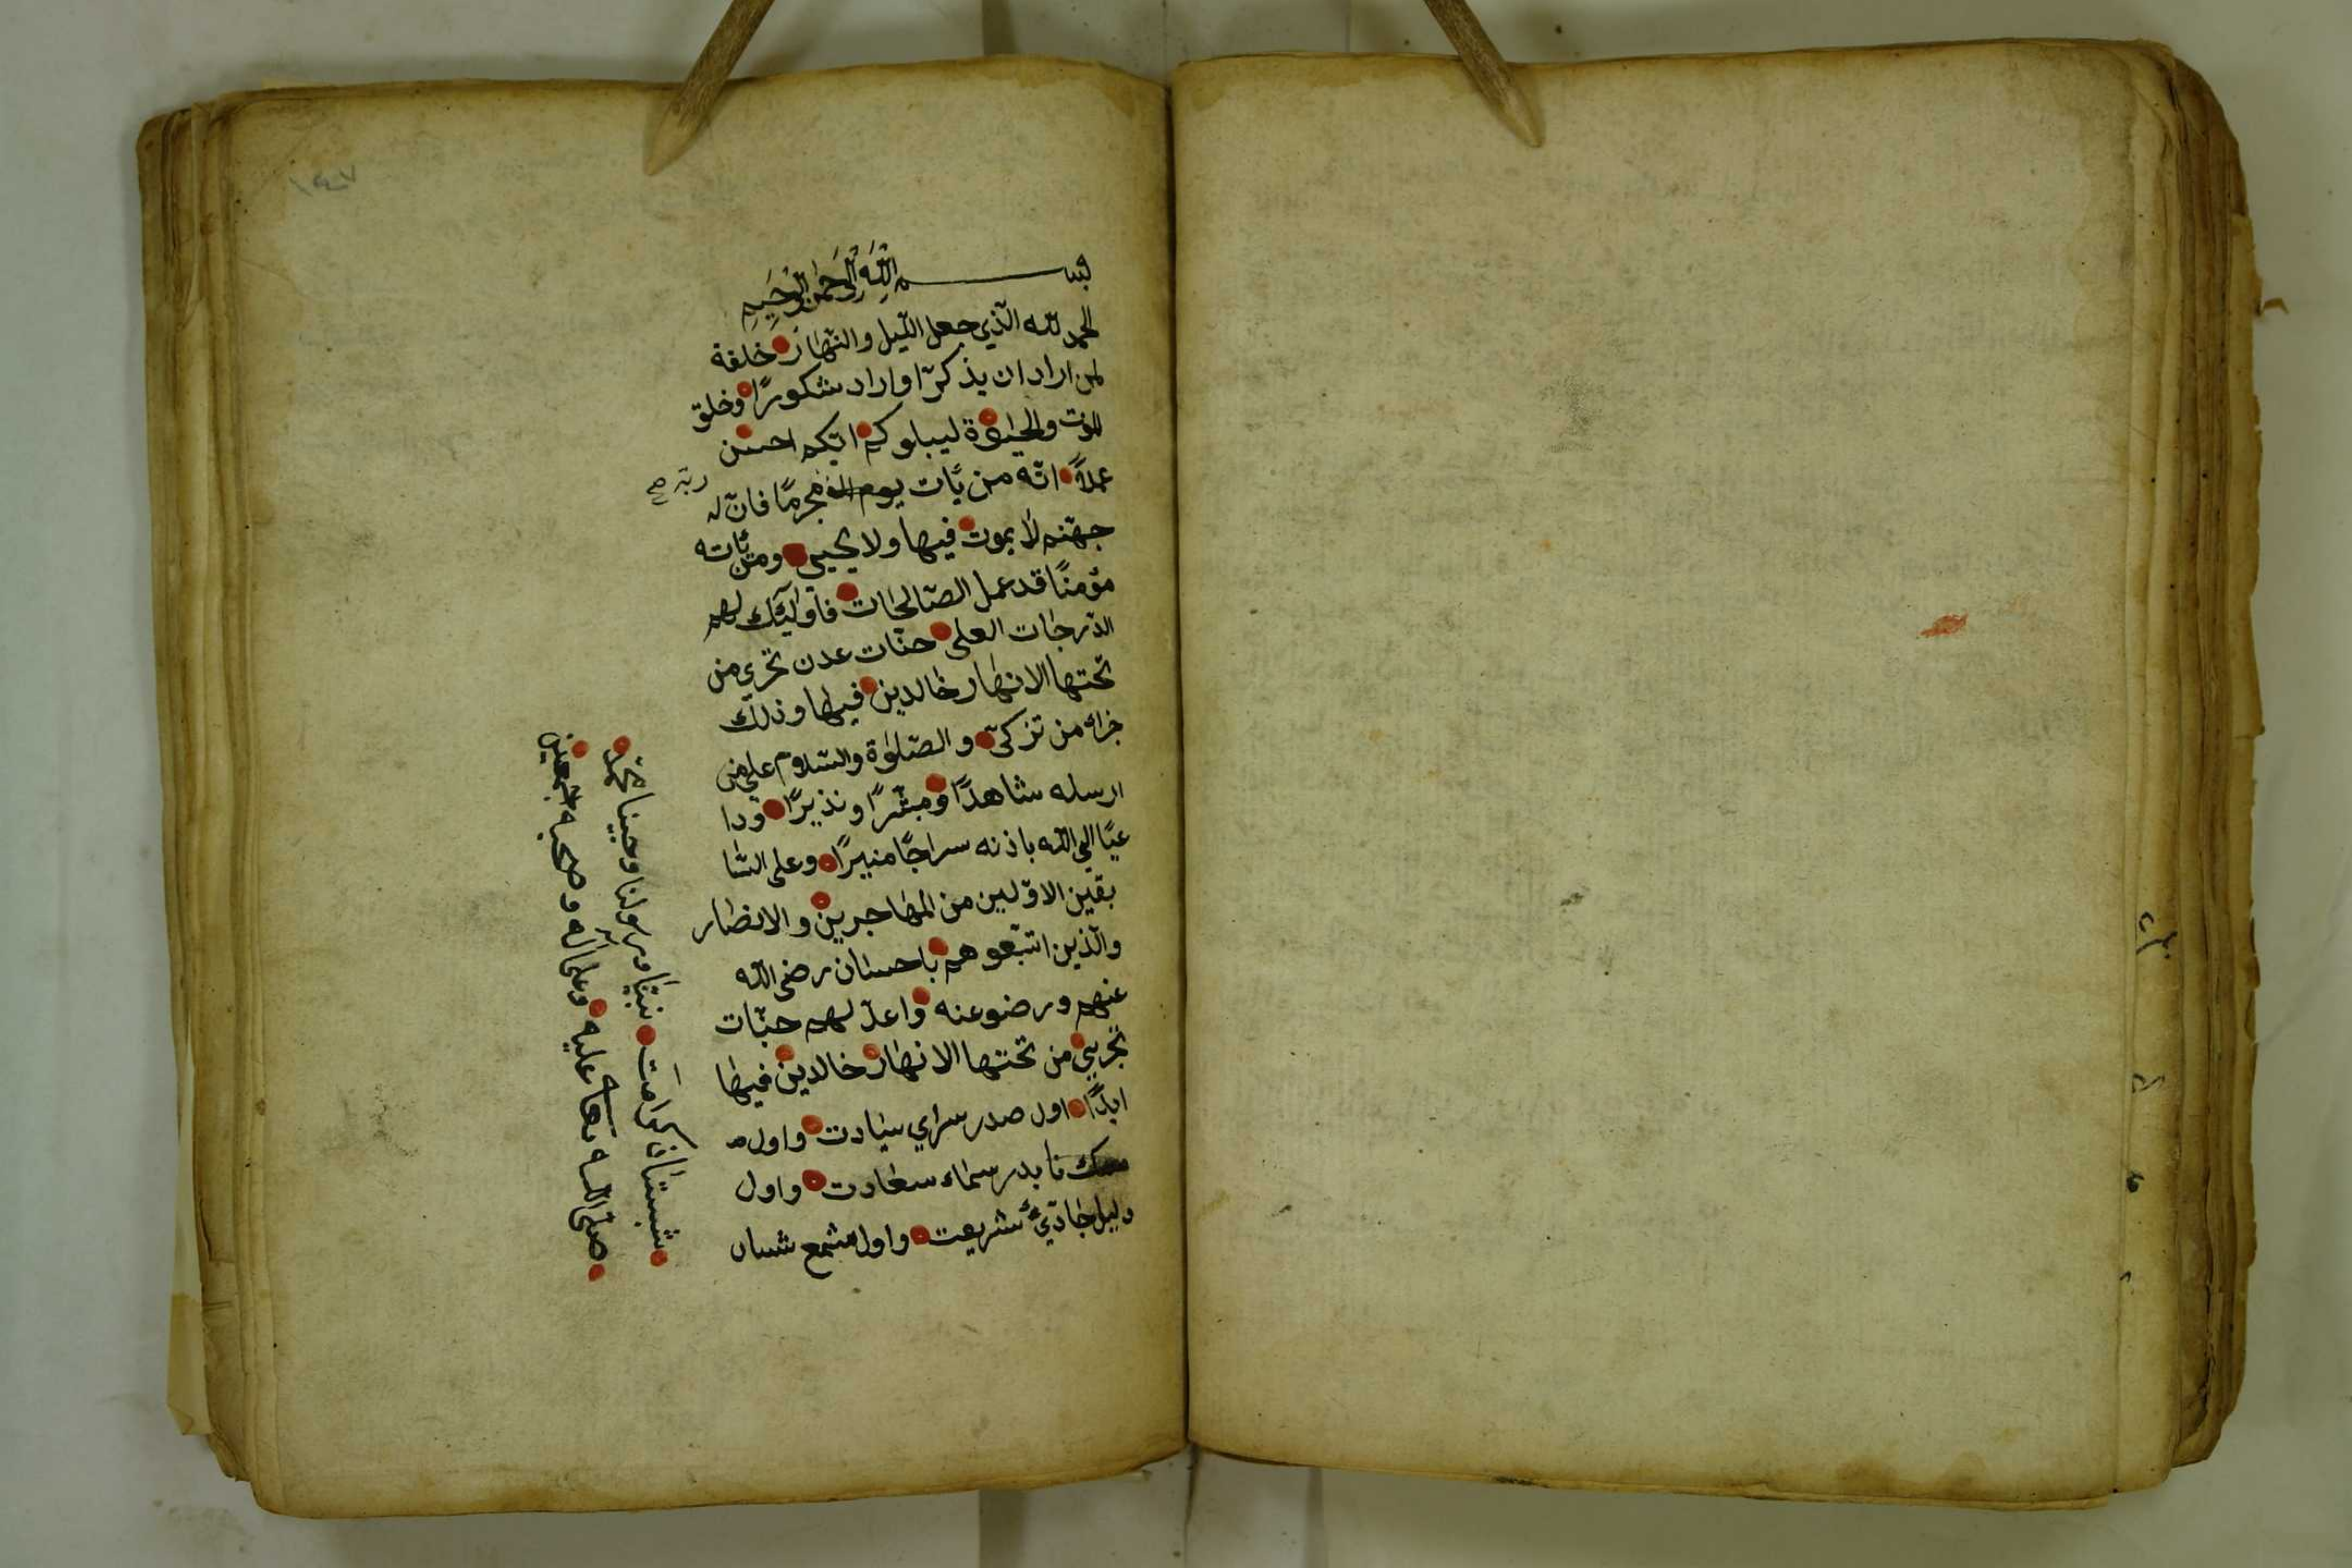 ١٤٧
بســـــم اللّٰه الرّحمن الرّحيم
الحمد للّه الّذي جعل اللّيل والنّهار خلفة
لمن اراد ان يذكّر او اراد شكورًا وخلق
الموت والحيوة ليبلوكم ايّكم احسن
عملاً انّه من يأت ربّه مجرمًا فانّ له
جهنّم لا يموت فيها ولا يحيى ومن يأته
مؤمنًا قد عمل الصّالحات فاولئك لهم
الدّرجات العلى جنّات عدن تجري من
تحتها الانهار خالدين فيها وذلك
جزاء من تزكّى والصّلوة والسّلام على من
ارسله شاهدًا ومبشّرًا ونذيرًا ودا
عيًا الي اللّه باذنه سراجًا منيرًا وعلى السّا
بقين الاوّلين من المهاجرين والانصار
والّذين اتّبعوهم باحسان رضى اللّه
عنهم ورضو عنه واعدّ لهم جنّات
تجري من تحتها الانهار خالدين فيها
ابدًا اول صدر سراي سيادت واول
بدر سماء سعادت واول
دليل جادّۀ شريعت واول شمع
شبستان كرامت نبيّنا ورسولنا وحبيبنا محمّد
صلّى اللّه تعالى عليه وعلى آله وصحبه اجمعين